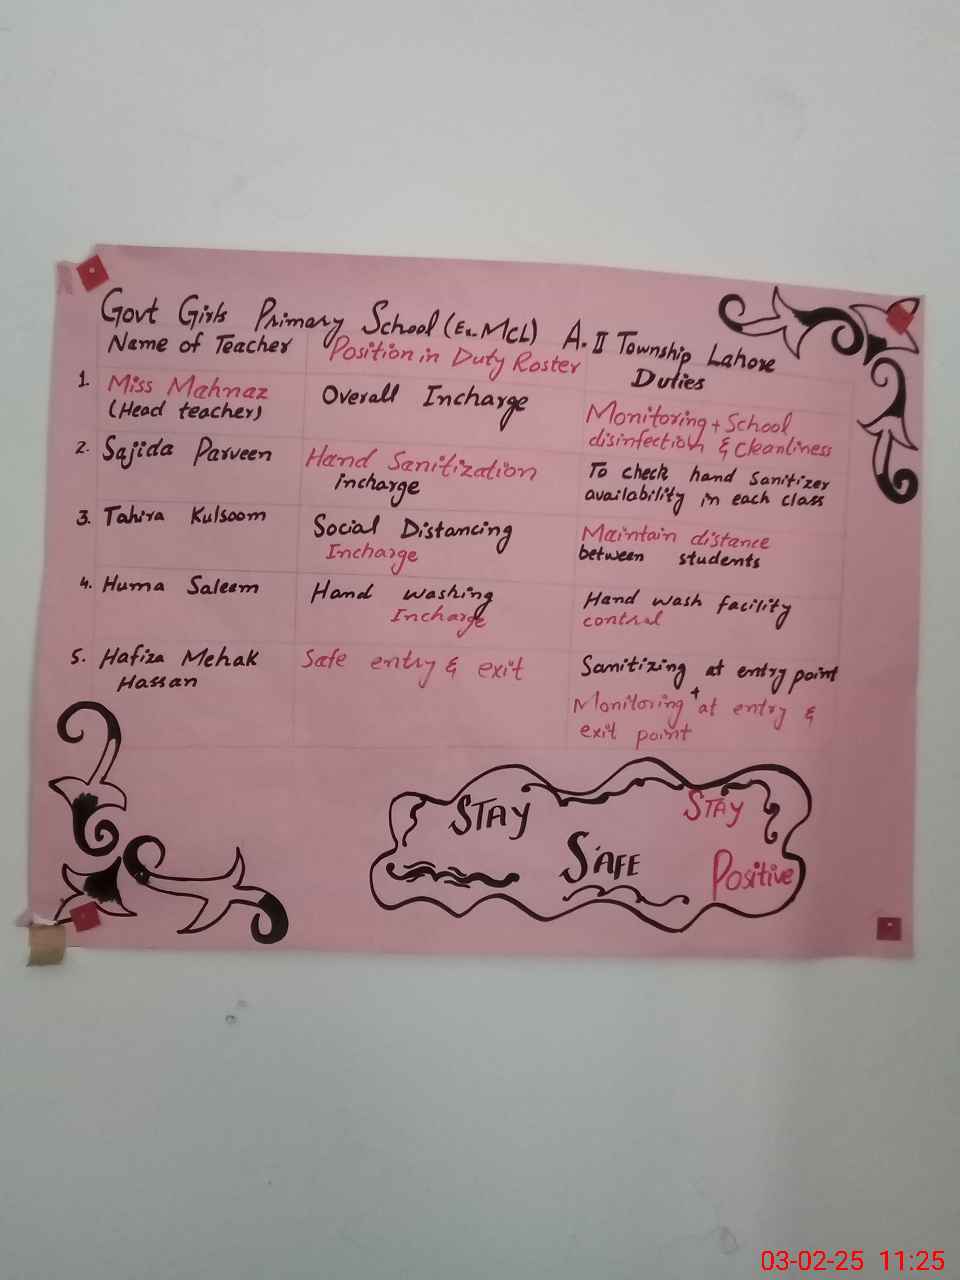 Govt Girls Primary School (Ex.MCL) A.II Township Lahore
Name of Teacher Position in Duty Roster Duties
1. Miss Mahnaz (Head teacher) Overall Incharge Monitoring + School
disinfection & Cleanliness
2. Sajida Parveen Hand Sanitization incharge To check hand sanitizer
availability in each class
3. Tahira Kulsoom Social Distancing Incharge Maintain distance
between students
4. Huma Saleem Hand washing Incharge Hand wash facility
control
5. Hafiza Mehak Hassan Safe entry & exit Sanitizing at entry point
+
Monitoring at entry &
exit point
STAY SAFE
STAY Positive
03-02-25 11:25